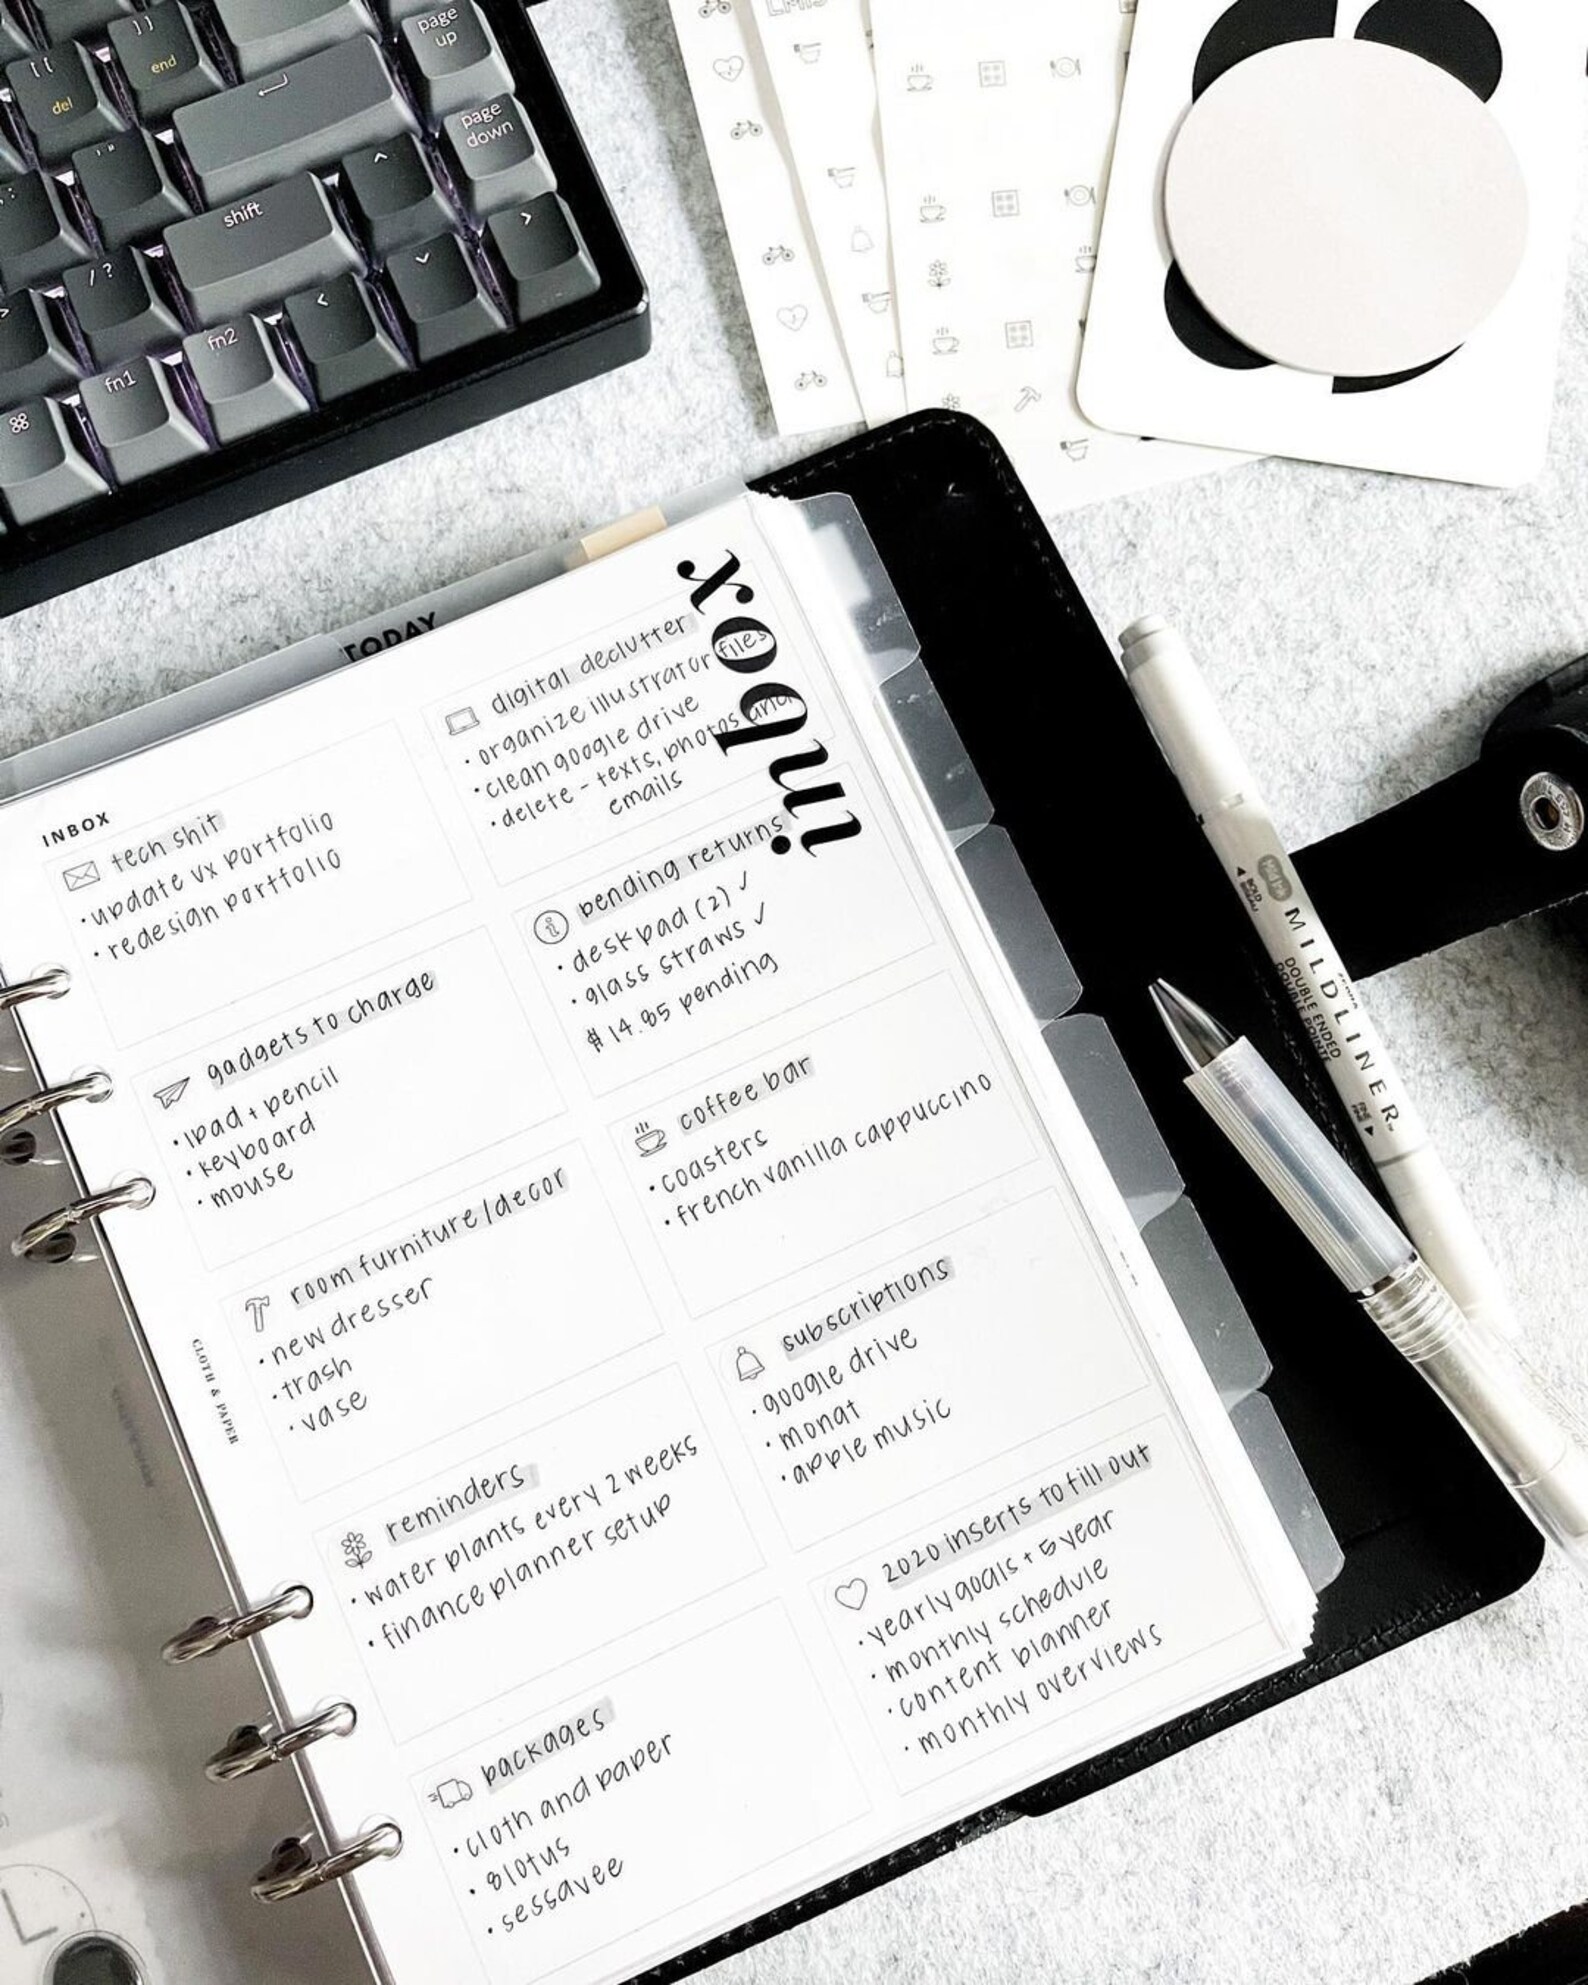 [ {
del
} ]
end
page
up
' "
page
down
shift
/ ?
fn1
fn2
TODAY
inbox
INBOX
tech shit
• update vx portfolio
• redesign portfolio
gadgets to charge
• ipad + pencil
• keyboard
• mouse
room furniture/decor
• new dresser
• trash
• vase
reminders
• water plants every 2 weeks
• finance planner setup
packages
• cloth and paper
• 8lotus
• sessavee
digital declutter
• organize illustrator files
• clean google drive
• delete - texts, photos and
emails
pending returns
• desk pad (2) ✓
• glass straws ✓
$14.85 pending
coffee bar
• coasters
• french vanilla cappuccino
subscriptions
• google drive
• monat
• apple music
2020 inserts to fill out
• yearly goals + 5 year
• monthly schedule
• content planner
• monthly overviews
CLOTH & PAPER
BOLD
MILDLINER
DOUBLE ENDED
DOUBLE POINTE
FINE